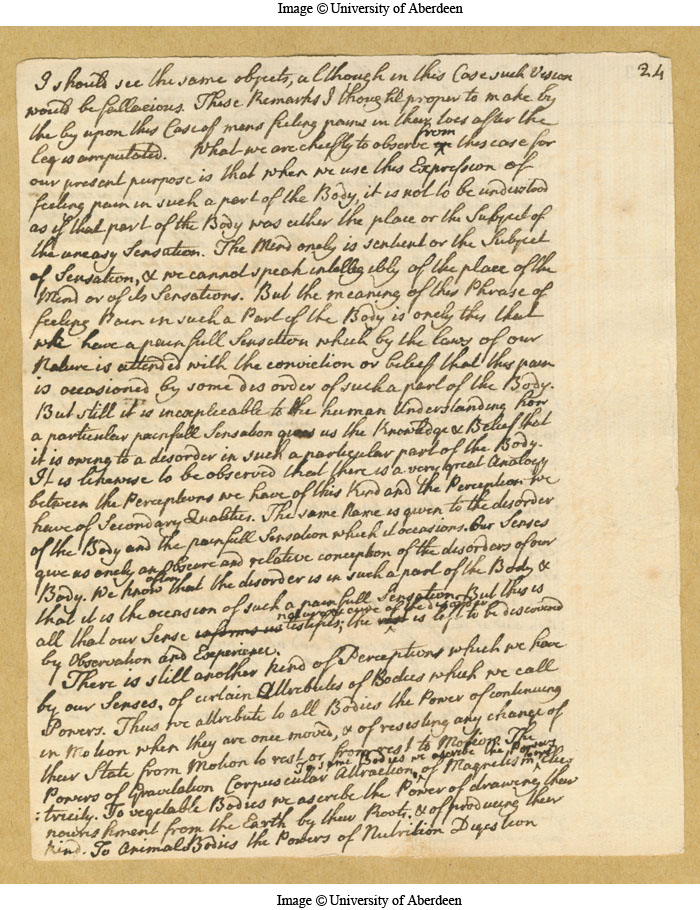 Image © University of Aberdeen
24
I should see the same objects, although in this Case such Vision
would be fallacious. These Remarks I thought proper to make by
the by upon this Case of mens feeling pains in their toes after the
leg is amputated. What we are chiefly to observe from this case for
our present purpose is that when we use this Expression of
feeling pain in such a part of the Body, it is not to be understood
as if that part of the Body was either the place or the Subject of
the uneasy Sensation. The Mind onely is sentient or the Subject
of Sensation, & we cannot speak intelligibly of the place of the
Mind or of its Sensations. But the meaning of this Phrase of
feeling Pain in such a Part of the Body is onely this that
we have a painfull Sensation which by the laws of our
Nature is attended with the conviction or belief that this pain
is occasioned by some disorder of such a part of the Body.
But still it is inexplicable to the human Understanding how
a particular painfull Sensation gives us the Knowledge & Belief that
it is owing to a disorder in such a particular part of the Body.
It is likewise to be observed that there is a very great Analogy
between the Perceptions we have of this Kind and the Perception we
have of Secondary Qualities. The same Name is given to the disorder
of the Body and the painfull Sensation which it occasions. Our Senses
give us onely an obscure and relative conception of the disorders of our
Body. We know often that the disorder is in such a part of the Body &
that it is the occasion of such a painfull Sensation. But this is
all that our Sense informs us testifies, the nature & cure of the disorder is left to be discovered
by Observation and Experience.
There is still another kind of Perceptions which we have
by our Senses, of certain Attributes of Bodies which we call
Powers. Thus we attribute to all Bodies the Power of continuing
in Motion when they are once moved, & of resisting any change of
their State from Motion to rest or from rest to Motion. The
Powers of Gravitation Corpuscular Attraction, To some Bodies we ascribe the Powers of Magnetism Elec
:tricity. To vegetable Bodies we ascribe the Power of drawing their
nourishment from the Earth by their Roots, & of producing their
kind. To Animal Bodies the Powers of Nutrition Digestion
Image © University of Aberdeen